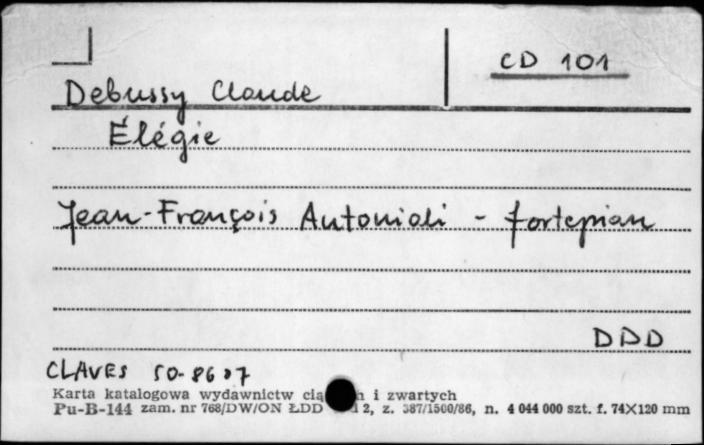 CD 101
Debussy Claude
Élégie
Jean-François Antonioli - fortepian
DDD
CLAVES 50-8607
Karta katalogowa wydawnictw i zwartych
Pu-B-144 zam. nr 768/DW/ON ŁDD 2, z. 387/1500/86, n. 4 044 000 szt. f. 74×120 mm